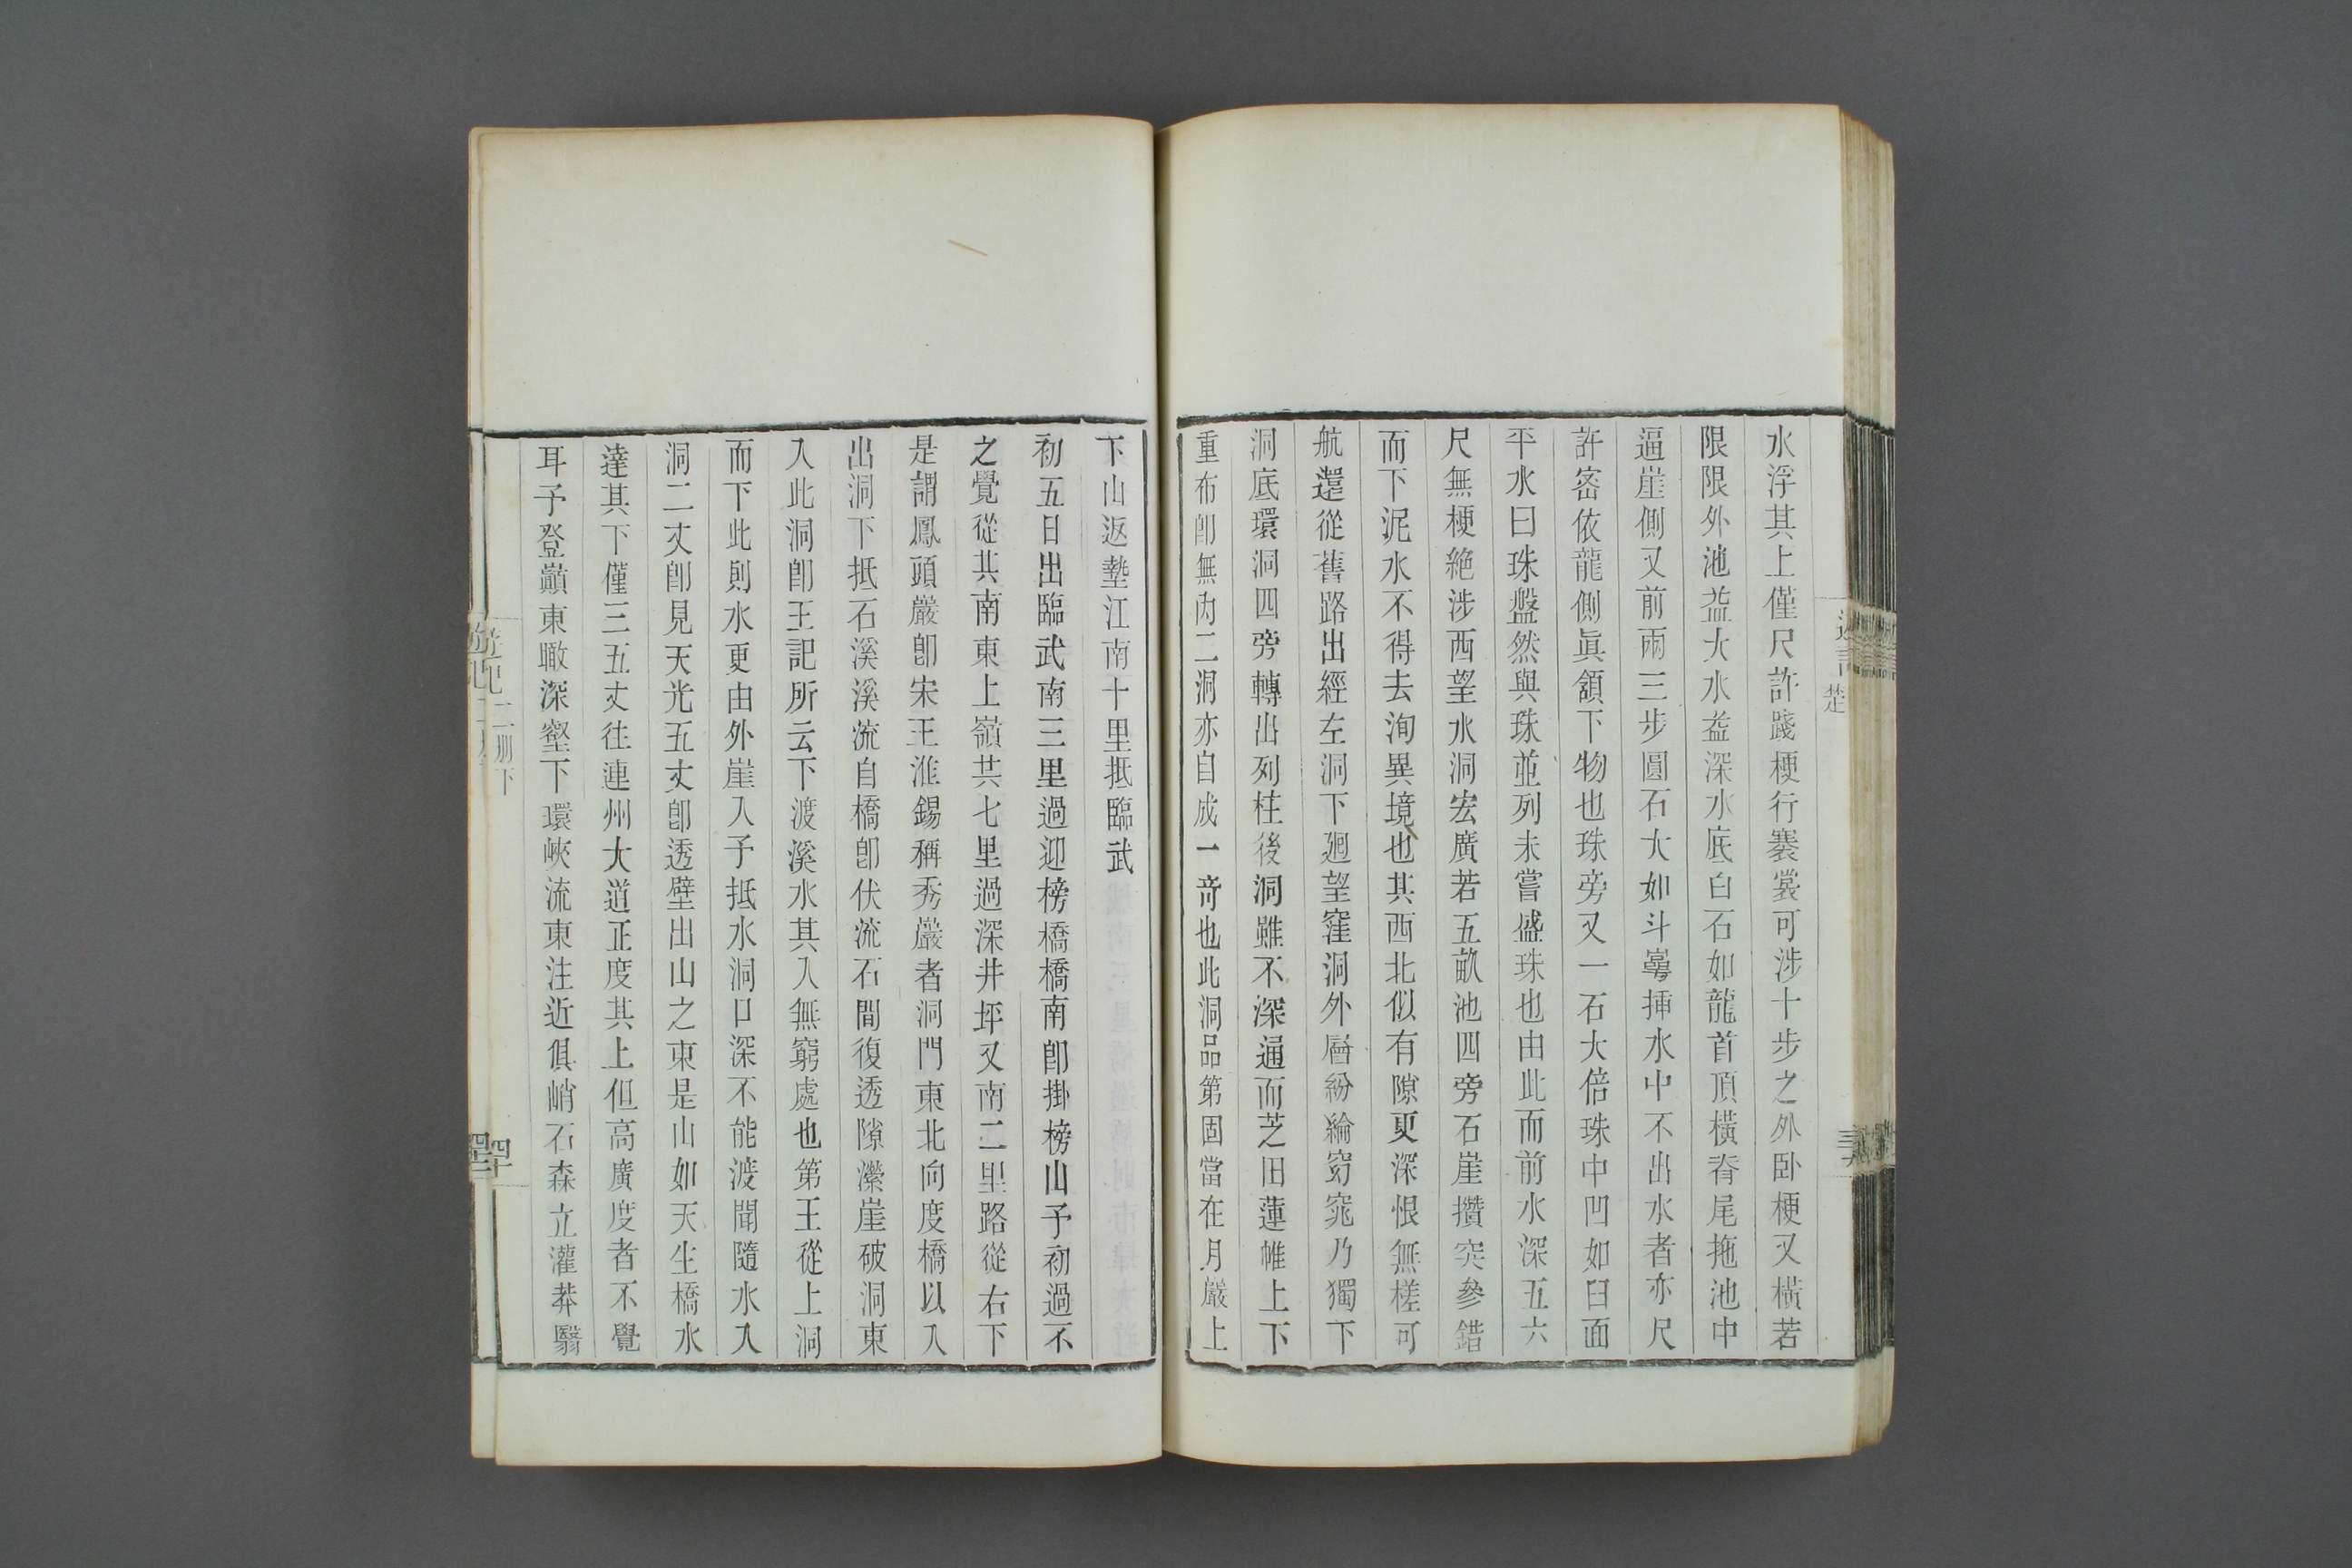 水浮其上僅尺許踐梗行褰裳可涉十步之外卧梗又橫若
限限外池益大水益深水底白石如龍首頂橫脊尾拖池中
逼崖側又前兩三步圓石大如斗蕚揷水中不出水者亦尺
許密依龍側眞頷下物也珠旁又一石大倍珠中凹如臼面
平水曰珠盤然與珠並列未嘗盛珠也由此而前水深五六
尺無梗絶涉西望水洞宏廣若五畝池四旁石崖攢突參錯
而下泥水不得去洵異境也其西北似有隙更深恨無槎可
航還從舊路出經左洞下廻望窪洞外層紛綸窈窕乃獨下
洞底環洞四旁轉出列柱後洞雖不深逼而芝田蓮帷上下
重布卽無內二洞亦自成一奇也此洞品第固當在月巖上
下山返墊江南十里抵臨武
初五日出臨武南三里過迎榜橋橋南卽掛榜山予初過不
之覺從其南東上嶺共七里過深井坪又南二里路從右下
是謂鳳頭巖卽宋王淮錫稱秀巖者洞門東北向度橋以入
出洞下抵石溪溪流自橋卽伏流石間復透隙瀠崖破洞東
入此洞卽王記所云下渡溪水其入無窮處也第王從上洞
而下此則水更由外崖入予抵水洞口深不能渡聞隨水入
洞二丈卽見天光五丈卽透壁出山之東是山如天生橋水
達其下僅三五丈往連州大道正度其上但高廣度者不覺
耳予登巓東瞰深壑下環峽流東注近俱峭石森立灌莽翳
二册下
四十
楚